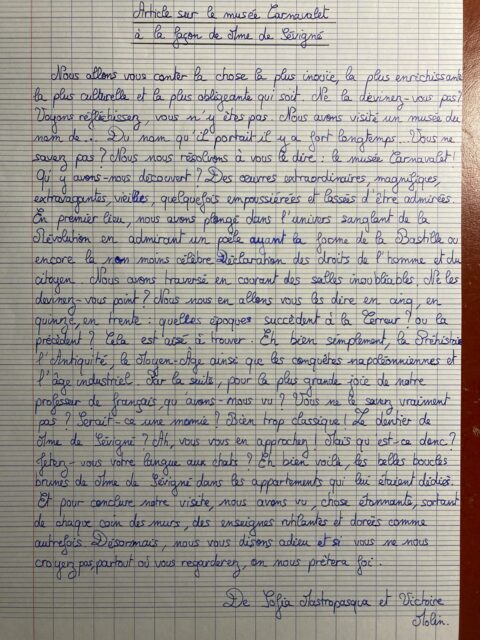 Article sur le musée Carnavalet
à la façon de Mme de Sévigné
Nous allons vous conter la chose la plus inouïe, la plus enrichissante
la plus culturelle et la plus obligeante qui soit. Ne la devinez-vous pas?
Voyons réfléchissez, vous n'y êtes pas. Nous avons visité un musée du
nom de... Du nom qu'il portait il y a fort longtemps... Vous ne
savez pas? Nous nous résolvons à vous le dire: le musée Carnavalet!
Qu'y avons-nous découvert? Des œuvres extraordinaires, magnifiques,
extravagantes, vieilles, quelquefois empoussiérées et lassés d'être admirées.
En premier lieu, nous avons plongé dans l'univers sanglant de la
Révolution en admirant un poêle ayant la forme de la Bastille ou
encore la non moins célèbre Déclaration des droits de l'homme et du
citoyen. Nous avons traversé en courant des salles inoubliables. Ne les
devinez-vous point? Nous nous en allons vous les dire en cinq, en
quinze, en trente: quelles époques succèdent à la Terreur? ou la
précèdent? Cela est aisé à trouver. Eh bien simplement, la Préhistoire
l'Antiquité, le Moyen-Age ainsi que les conquêtes napoléoniennes et
l'âge industriel. Par la suite, pour la plus grande joie de notre
professeur de français, qu'avons-nous vu? Vous ne le savez vraiment
pas? Serait-ce une momie? Bien trop classique! Le dentier de
Mme de Sévigné? Ah, vous vous en approchez! Mais qu'est-ce donc?
Jetez-vous votre langue aux chats? Eh bien voilà, les belles boucles
brunes de Mme de Sévigné dans les appartements qui lui étaient dédiés.
Et pour conclure notre visite, nous avons vu, chose étonnante, sortant
de chaque coin des murs, des enseignes rutilantes et dorées comme
autrefois. Désormais, nous vous disons adieu et si vous ne nous
croyez pas, partout où vous regarderez, on nous prêtera foi.
De Sofia Mastropasqua et Victoire
Molin.